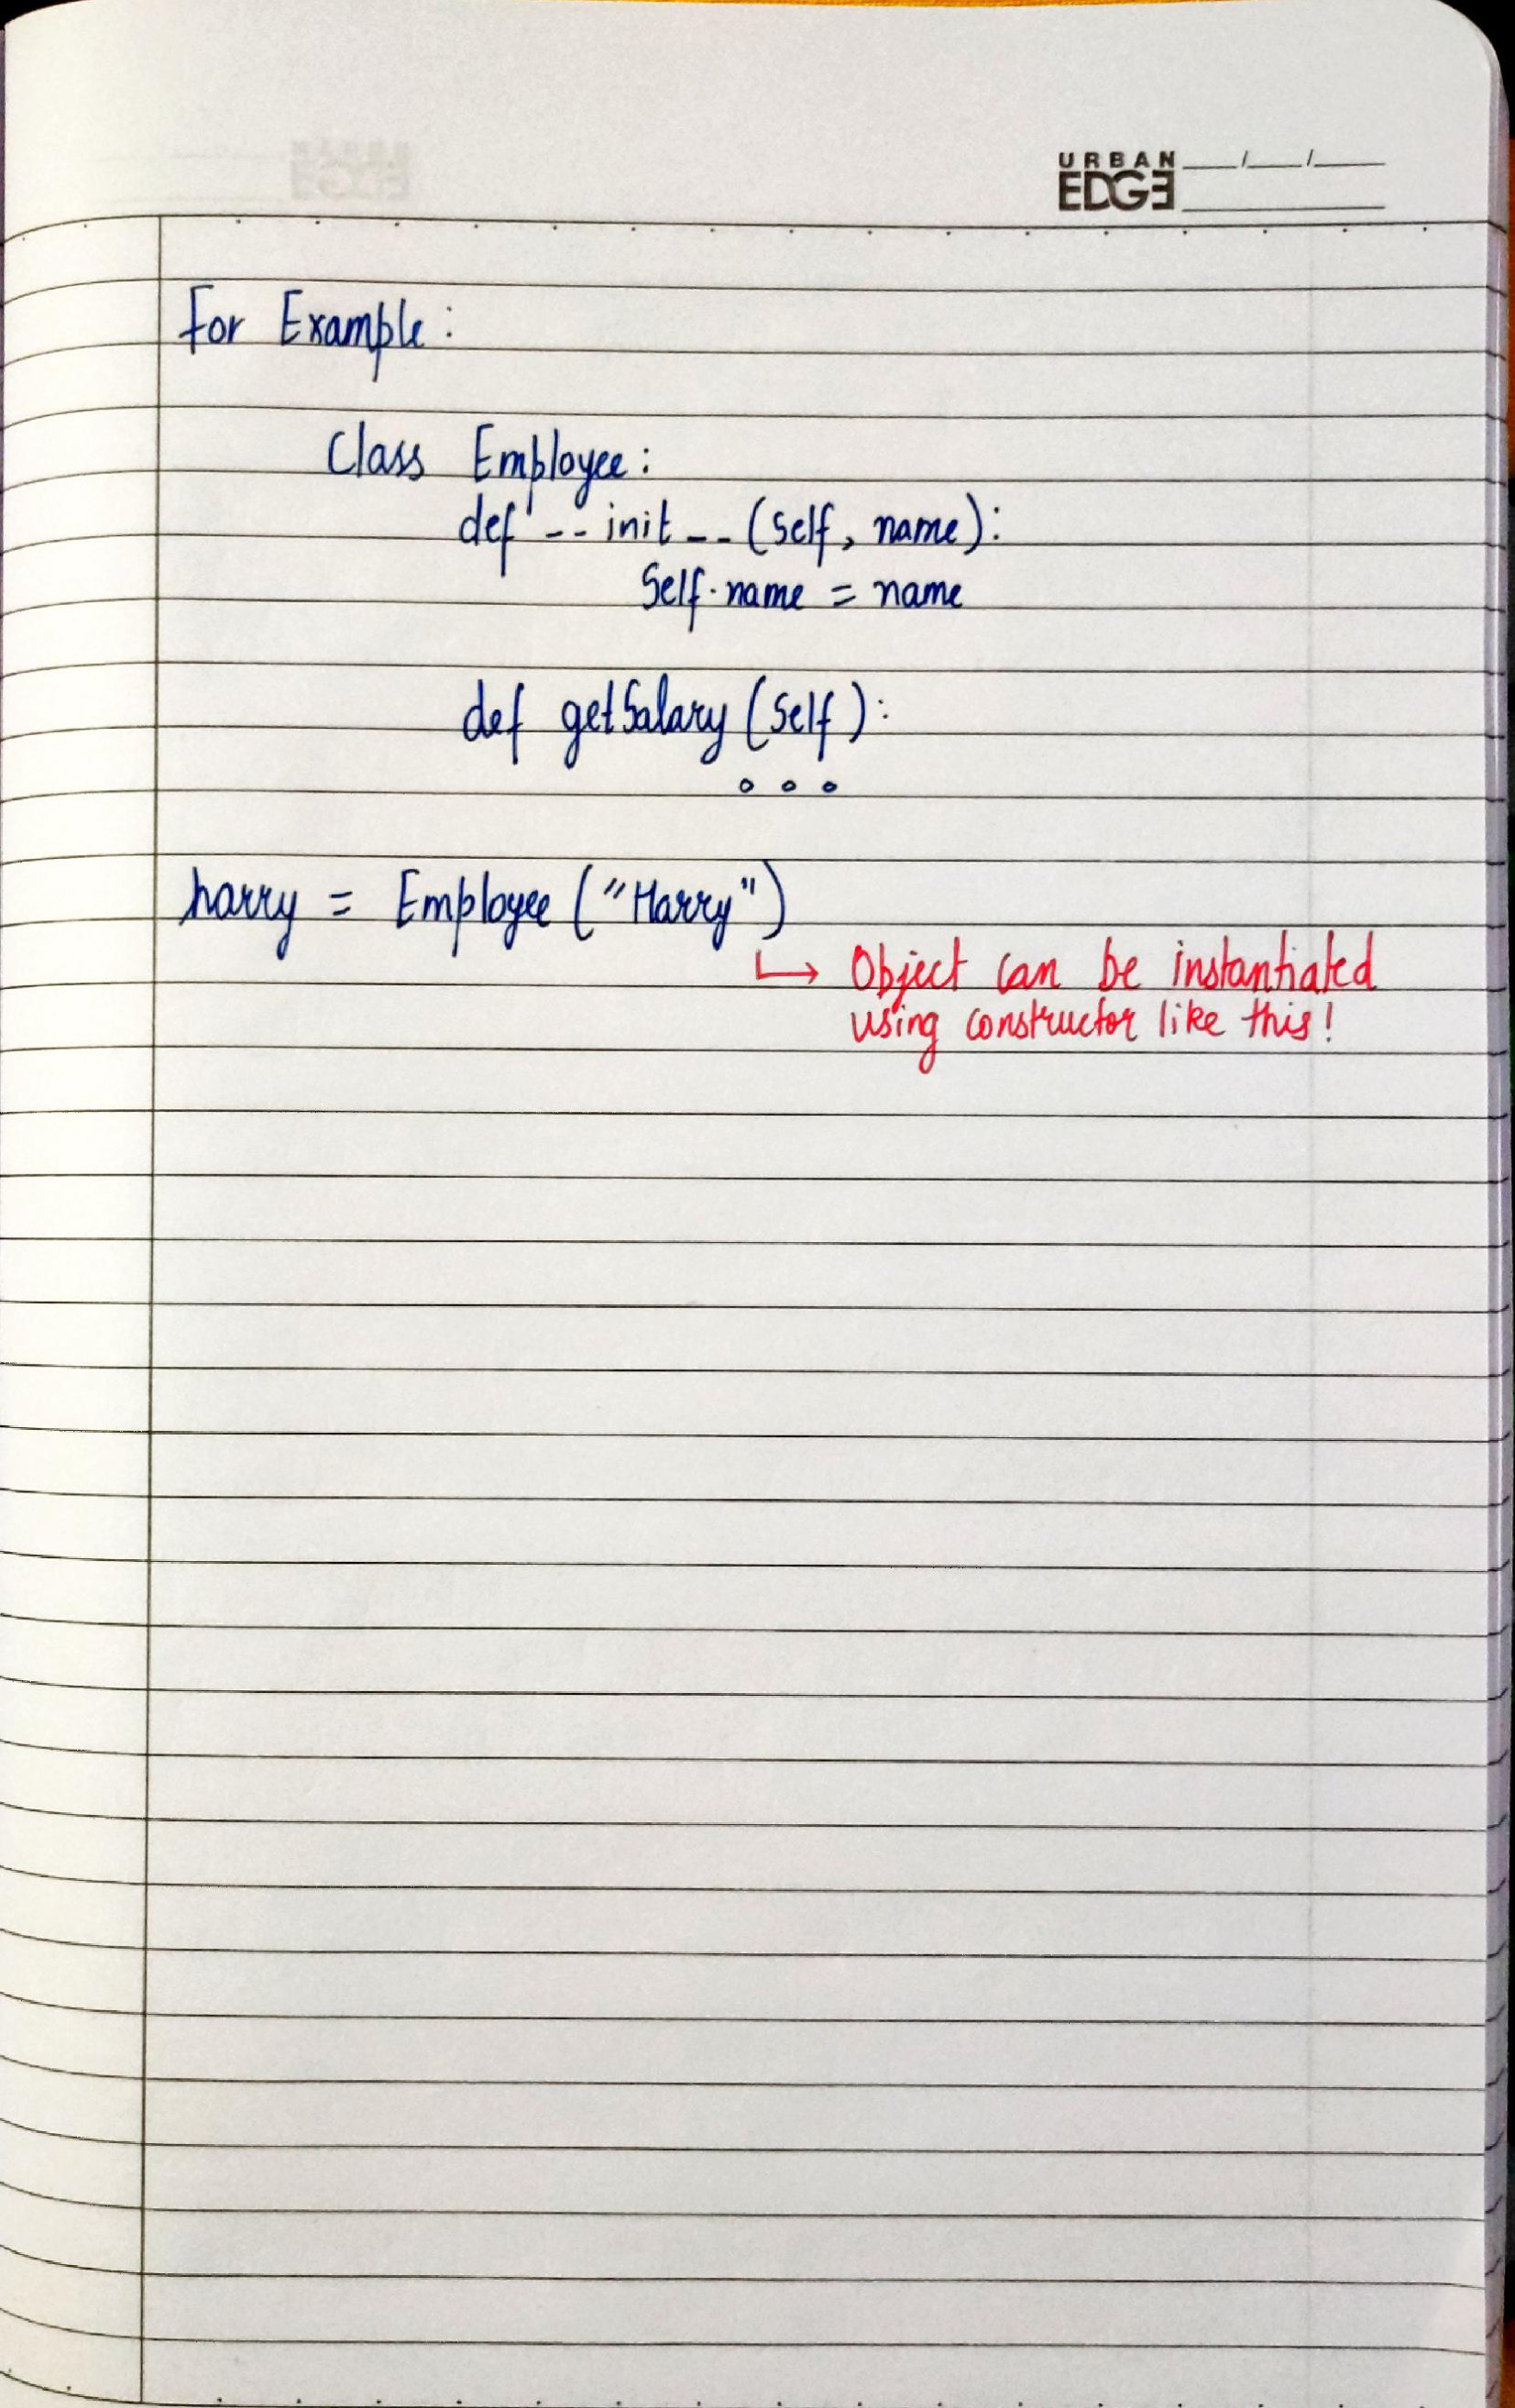 URBAN
EDGE
For Example:
Class Employee:
def __init__(self, name):
Self.name = name
def getSalary(Self):
...
harry = Employee("Harry")
↳ Object can be instantiated
using constructor like this!